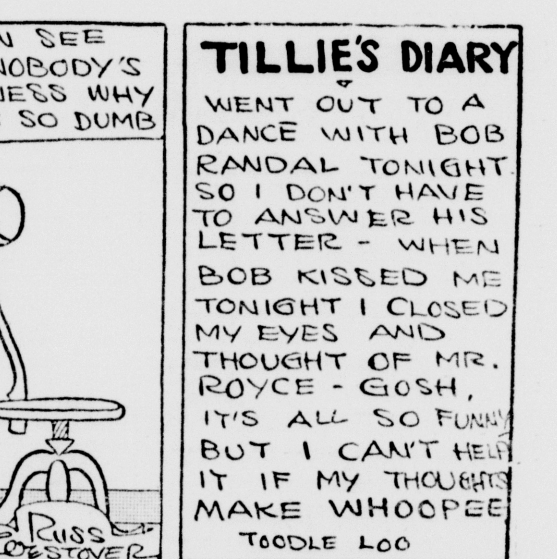 SEE
NOBODY'S
WHY
SO DUMB
TILLIE'S DIARY
WENT OUT TO A
DANCE WITH BOB
RANDAL TONIGHT.
SO I DON'T HAVE
TO ANSWER HIS
LETTER - WHEN
BOB KISSED ME
TONIGHT I CLOSED
MY EYES AND
THOUGHT OF MR.
ROYCE - GOSH,
IT'S ALL SO FUNNY
BUT I CAN'T HELP
IT IF MY THOUGHTS
MAKE WHOOPEE
TOODLE LOO
RUSS
WESTOVER